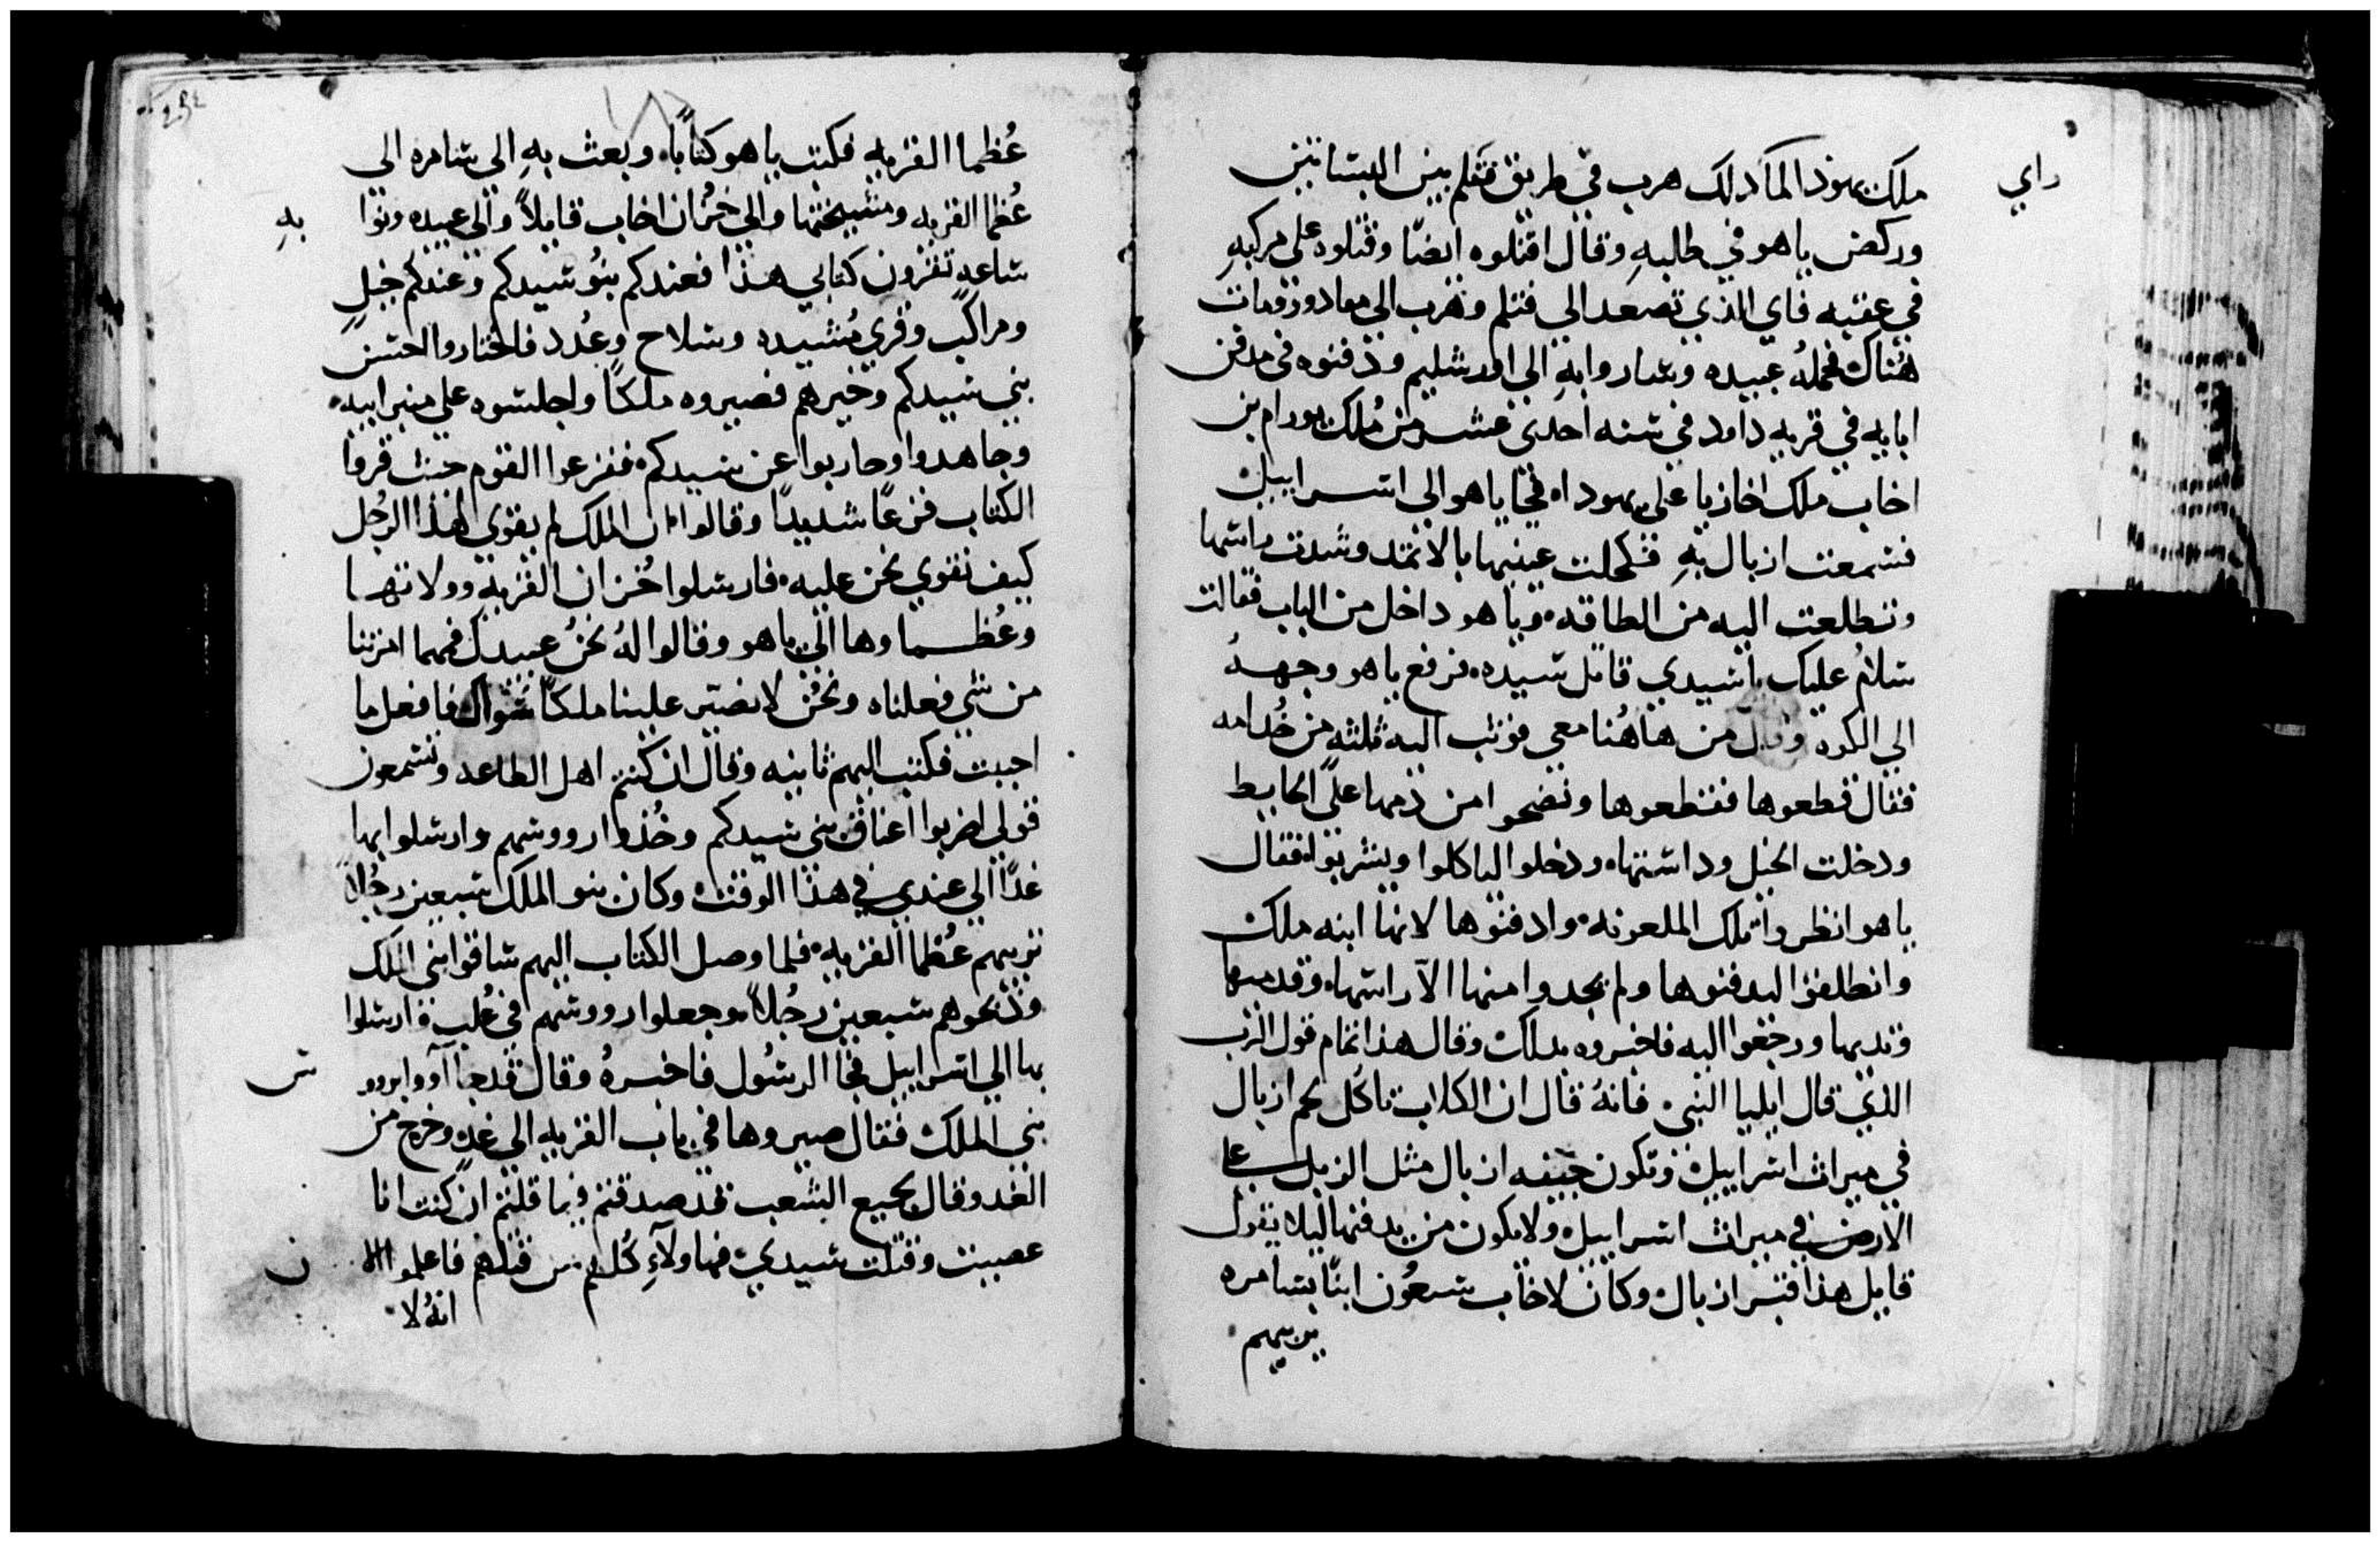 راي
ملك يهودا لما دلك هرب في طريق فتلم بين البساتين
وركض ياهو في طلبهِ وقال اقتلوه ايضًا وقتلوه على مركبهِ
في عقبه فاي الذي تصعد الي فتلم وهرب الي معادو ومات
هُناك فحملهُ عبيده وساروا بهِ الى اورشليم ودفنوه في مدفن
ابايه في قريه داود في سنه احدى عشر من مُلك يورام بن
اخاب ملك اخازيا على يهودا، فجا ياهو الى اسراييل
فسمعت ازبال بهِ فكحلت عينيها بالاثمد وشدت راسها
وتطلعت اليه من الطاقه. وياهو داخل من الباب فقالت
سلامُ عليك يا سيدي قاتل سيده. فرفع ياهو وجههُ
الى الكوه وقال من هاهُنا معي فوثب اليه ثلثه من خُدامه
فقال قطعوها فقطعوها ونضحوا من دمها علَى الحايط
ودخلت الخيل وداستها. ودخلوا لياكلوا ويشربوا فقال
ياهو انظروا تلك الملعونه. وادفنوها لانها ابنه ملك
وانطلقوا ليدفنوها ولم يجدوا منها الآ راسها. وقدميها
ويديها ورجعوا اليه فاخبروه بدلك وقال هذا تمام قول الرب
الذي قال ايليا النبي. فانهُ قال ان الكلاب تاكُل لحم ازبال
في ميراث اسراييل وتكون جيفه ازبال مثل الزبل على
الارض في ميراث اسراييل ولا يكون من يدفنها ليلا يقول
قايل هذا قبر ازبال وكان لاخاب سبعُون ابنًا بسامره
يربيهم
عُظما القريه فكتب ياهو كتابًا. وبعث بهِ الى سامره الى
عُظما القريه ومشيختها والي خُزان اخاب قايلاً والى عبيده
بهِ
ساعه تقرون كتابي هذا فعندكم بنُو سيدكم وعندكم خيل
ومراكب وقري مُشيده وسلاح وعُدد فاختاروا احسن
بني سيدكم وخيرهم فصيروه ملكًا واجلسوه على منبر ابيه.
وجاهدوا وحاربوا عن سيدكم. ففزعوا القوم حيث قروا
الكتاب فزعًا شديدًا وقالوا ان الملك لم يقوي لهذا الرجُل
كيف نقوي نحن عليه. فارسلوا خُزان القريه وولاتها
وعُظماوها الي ياهو وقالوا لهُ نحنُ عبيدك فمهما امرتنا
من شي فعلناه ونحنُ لا نصيّر علينا ملكًا سُواك فافعل ما
احببت فكتب اليهم ثانيه وقال ان كنتم اهل الطاعه وتسمعون
قولي اضربوا اعناق بني سيدكم وخُذوا رووسهم وارسلوا بها
غدًا الي عندي في هذا الوقت وكان بنو الملك سبعين رجُلاً
تربيهم عُظما القريه. فلما وصل الكتاب اليهم ساقوا بني الملك
وذبحوهم سبعين رجُلاً. وجعلوا رووسهم في عُلب وارسلوا
بها الي اسراييل فجا الرسُول فاخبرهُ وقال قد جاآووا برووس
بني الملك فقال صيروها في باب القريه الى غدٍ وخرج من
الغد وقال لجميع الشعب قد صدقتم فيما قلتم ان كنت انا
عصيت وقتلت سيدي. فهاولآءِ كُلهم من قتلهم فاعلموا الان
انهُ لا